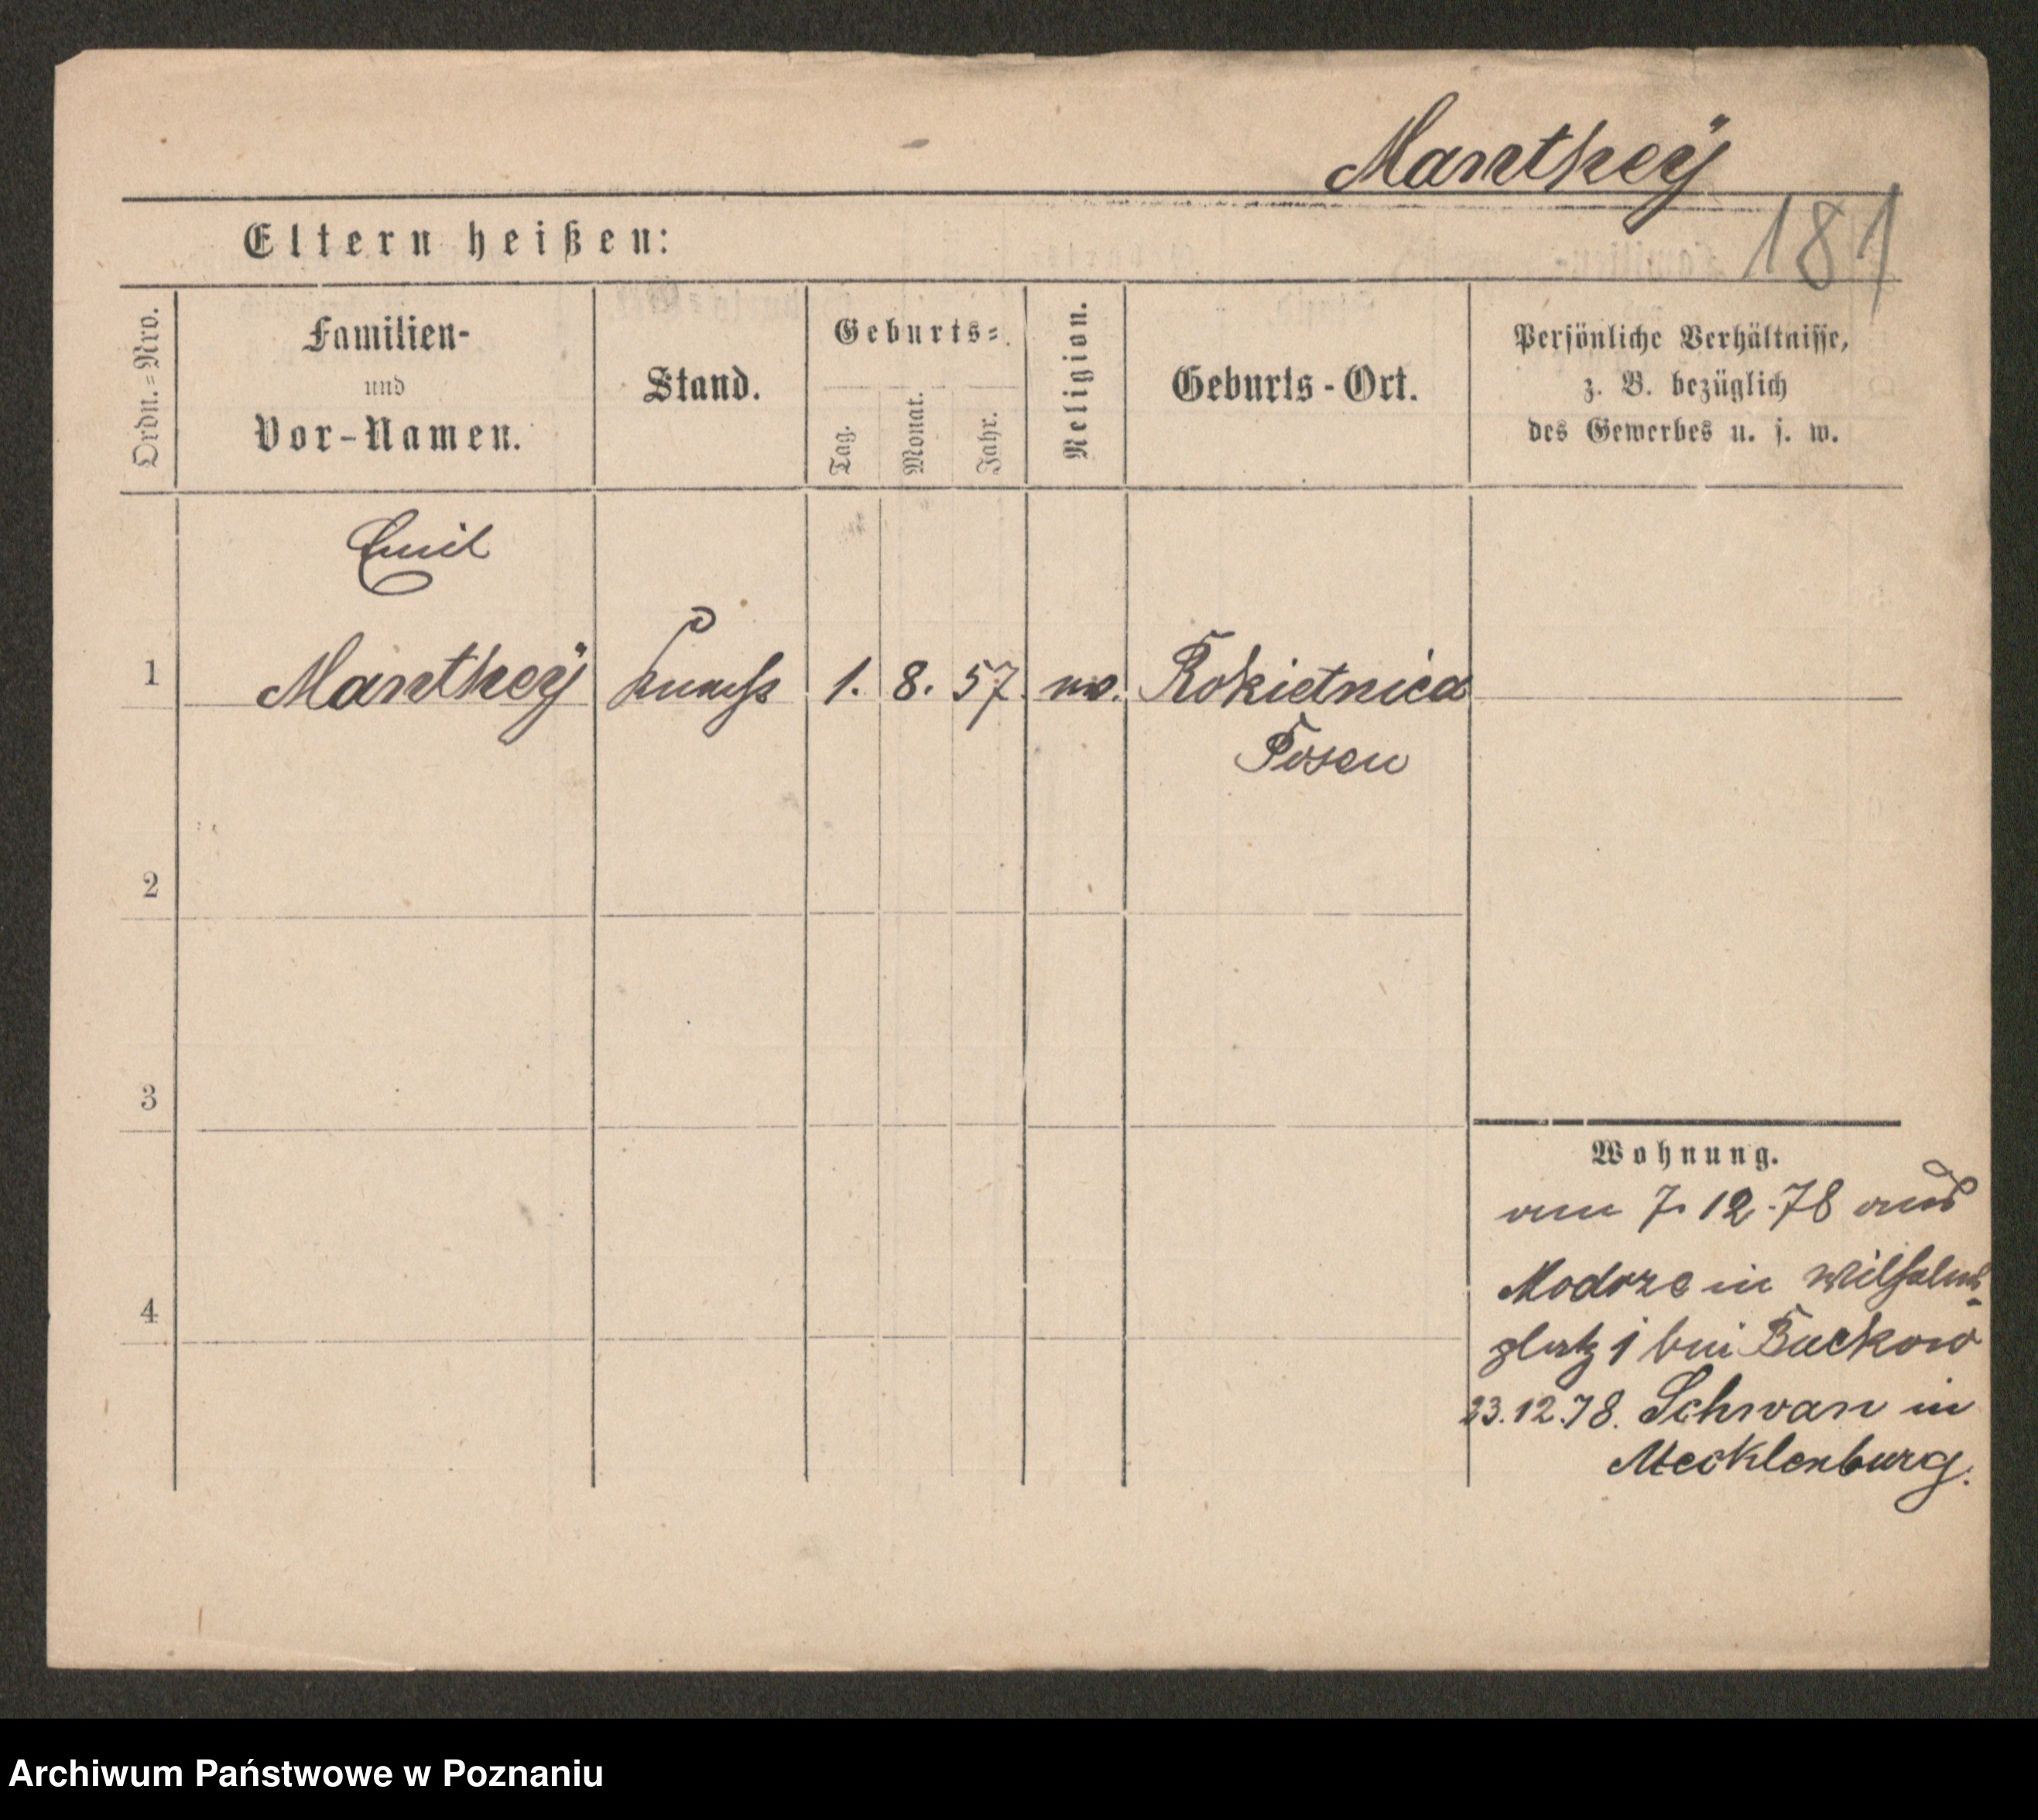 Manthey
181
Eltern heißen:
Ordn.=Nro.
Familien-
und
Vor-Namen.
Stand.
Geburts=
Tag.
Monat.
Jahr.
Religion.
Geburts-Ort.
Persönliche Verhältnisse,
z. B. bezüglich
des Gewerbes u. s. w.
Emil
1 Manthey 1. 8. 57. Rokietnica
Posen
2
3
4
Wohnung.
7. 12. 78 aus
Modrze in Wilhelms-
platz 1 bei Buckow
23.12.78. Schwan in
Mecklenburg.
Archiwum Państwowe w Poznaniu